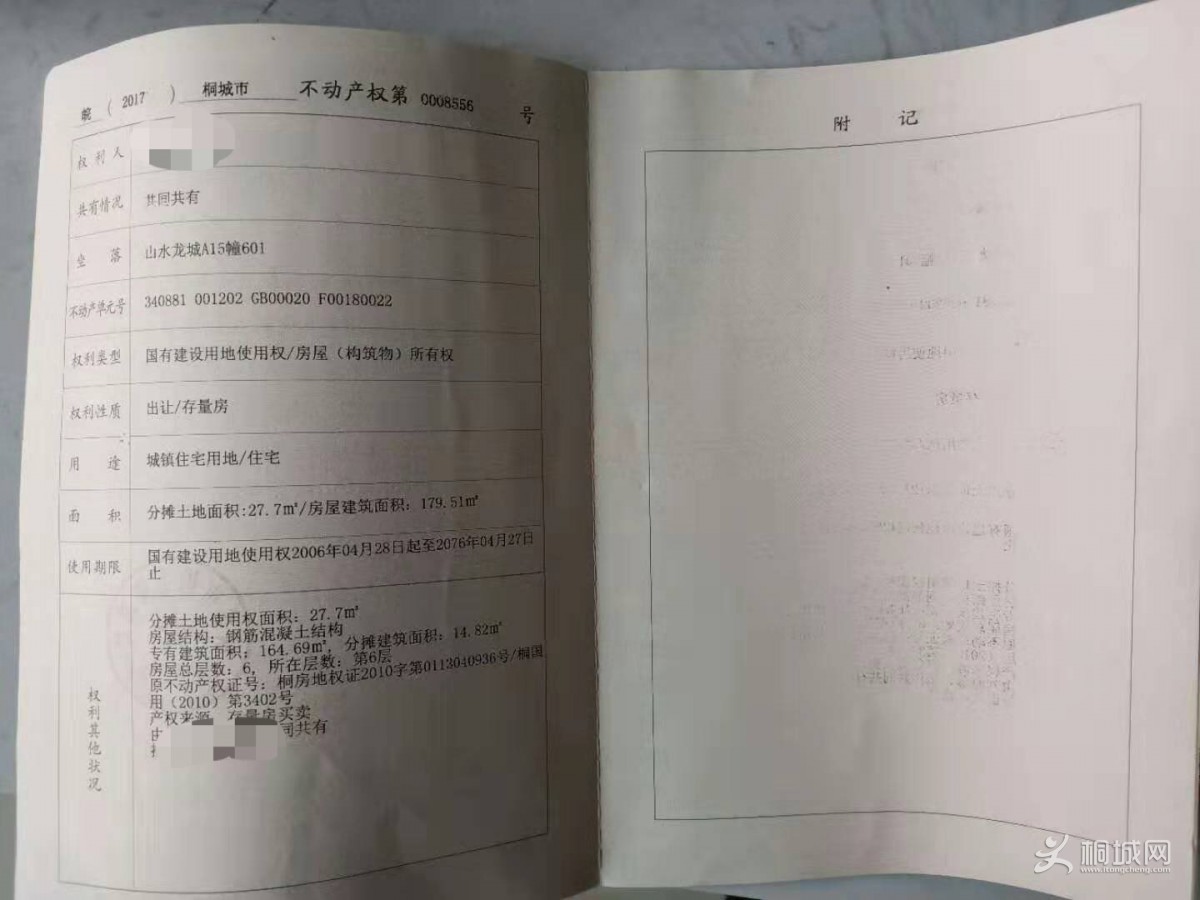 皖（2017）桐城市 不动产权第 0008556 号
权利人
共有情况 共同共有
坐落 山水龙城A15幢601
不动产单元号 340881 001202 GB00020 F00180022
权利类型 国有建设用地使用权/房屋（构筑物）所有权
权利性质 出让/存量房
用途 城镇住宅用地/住宅
面积 分摊土地面积:27.7㎡/房屋建筑面积：179.51㎡
使用期限 国有建设用地使用权2006年04月28日起至2076年04月27日
止
权利其他状况
分摊土地使用权面积：27.7㎡
房屋结构：钢筋混凝土结构
专有建筑面积：164.69㎡，分摊建筑面积：14.82㎡
房屋总层数：6，所在层数：第6层
原不动产权证号：桐房地权证2010字第0113040936号/桐国
用（2010）第3402号
产权来源：存量房买卖
同共有
附记
桐城网
www.itongcheng.com